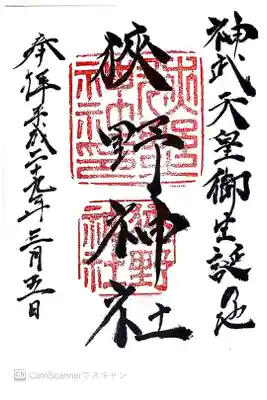 神武天皇御生誕の地
狹野神社
奉拝 平成二十九年三月五日
狹野神社
CS CamScannerでスキャン